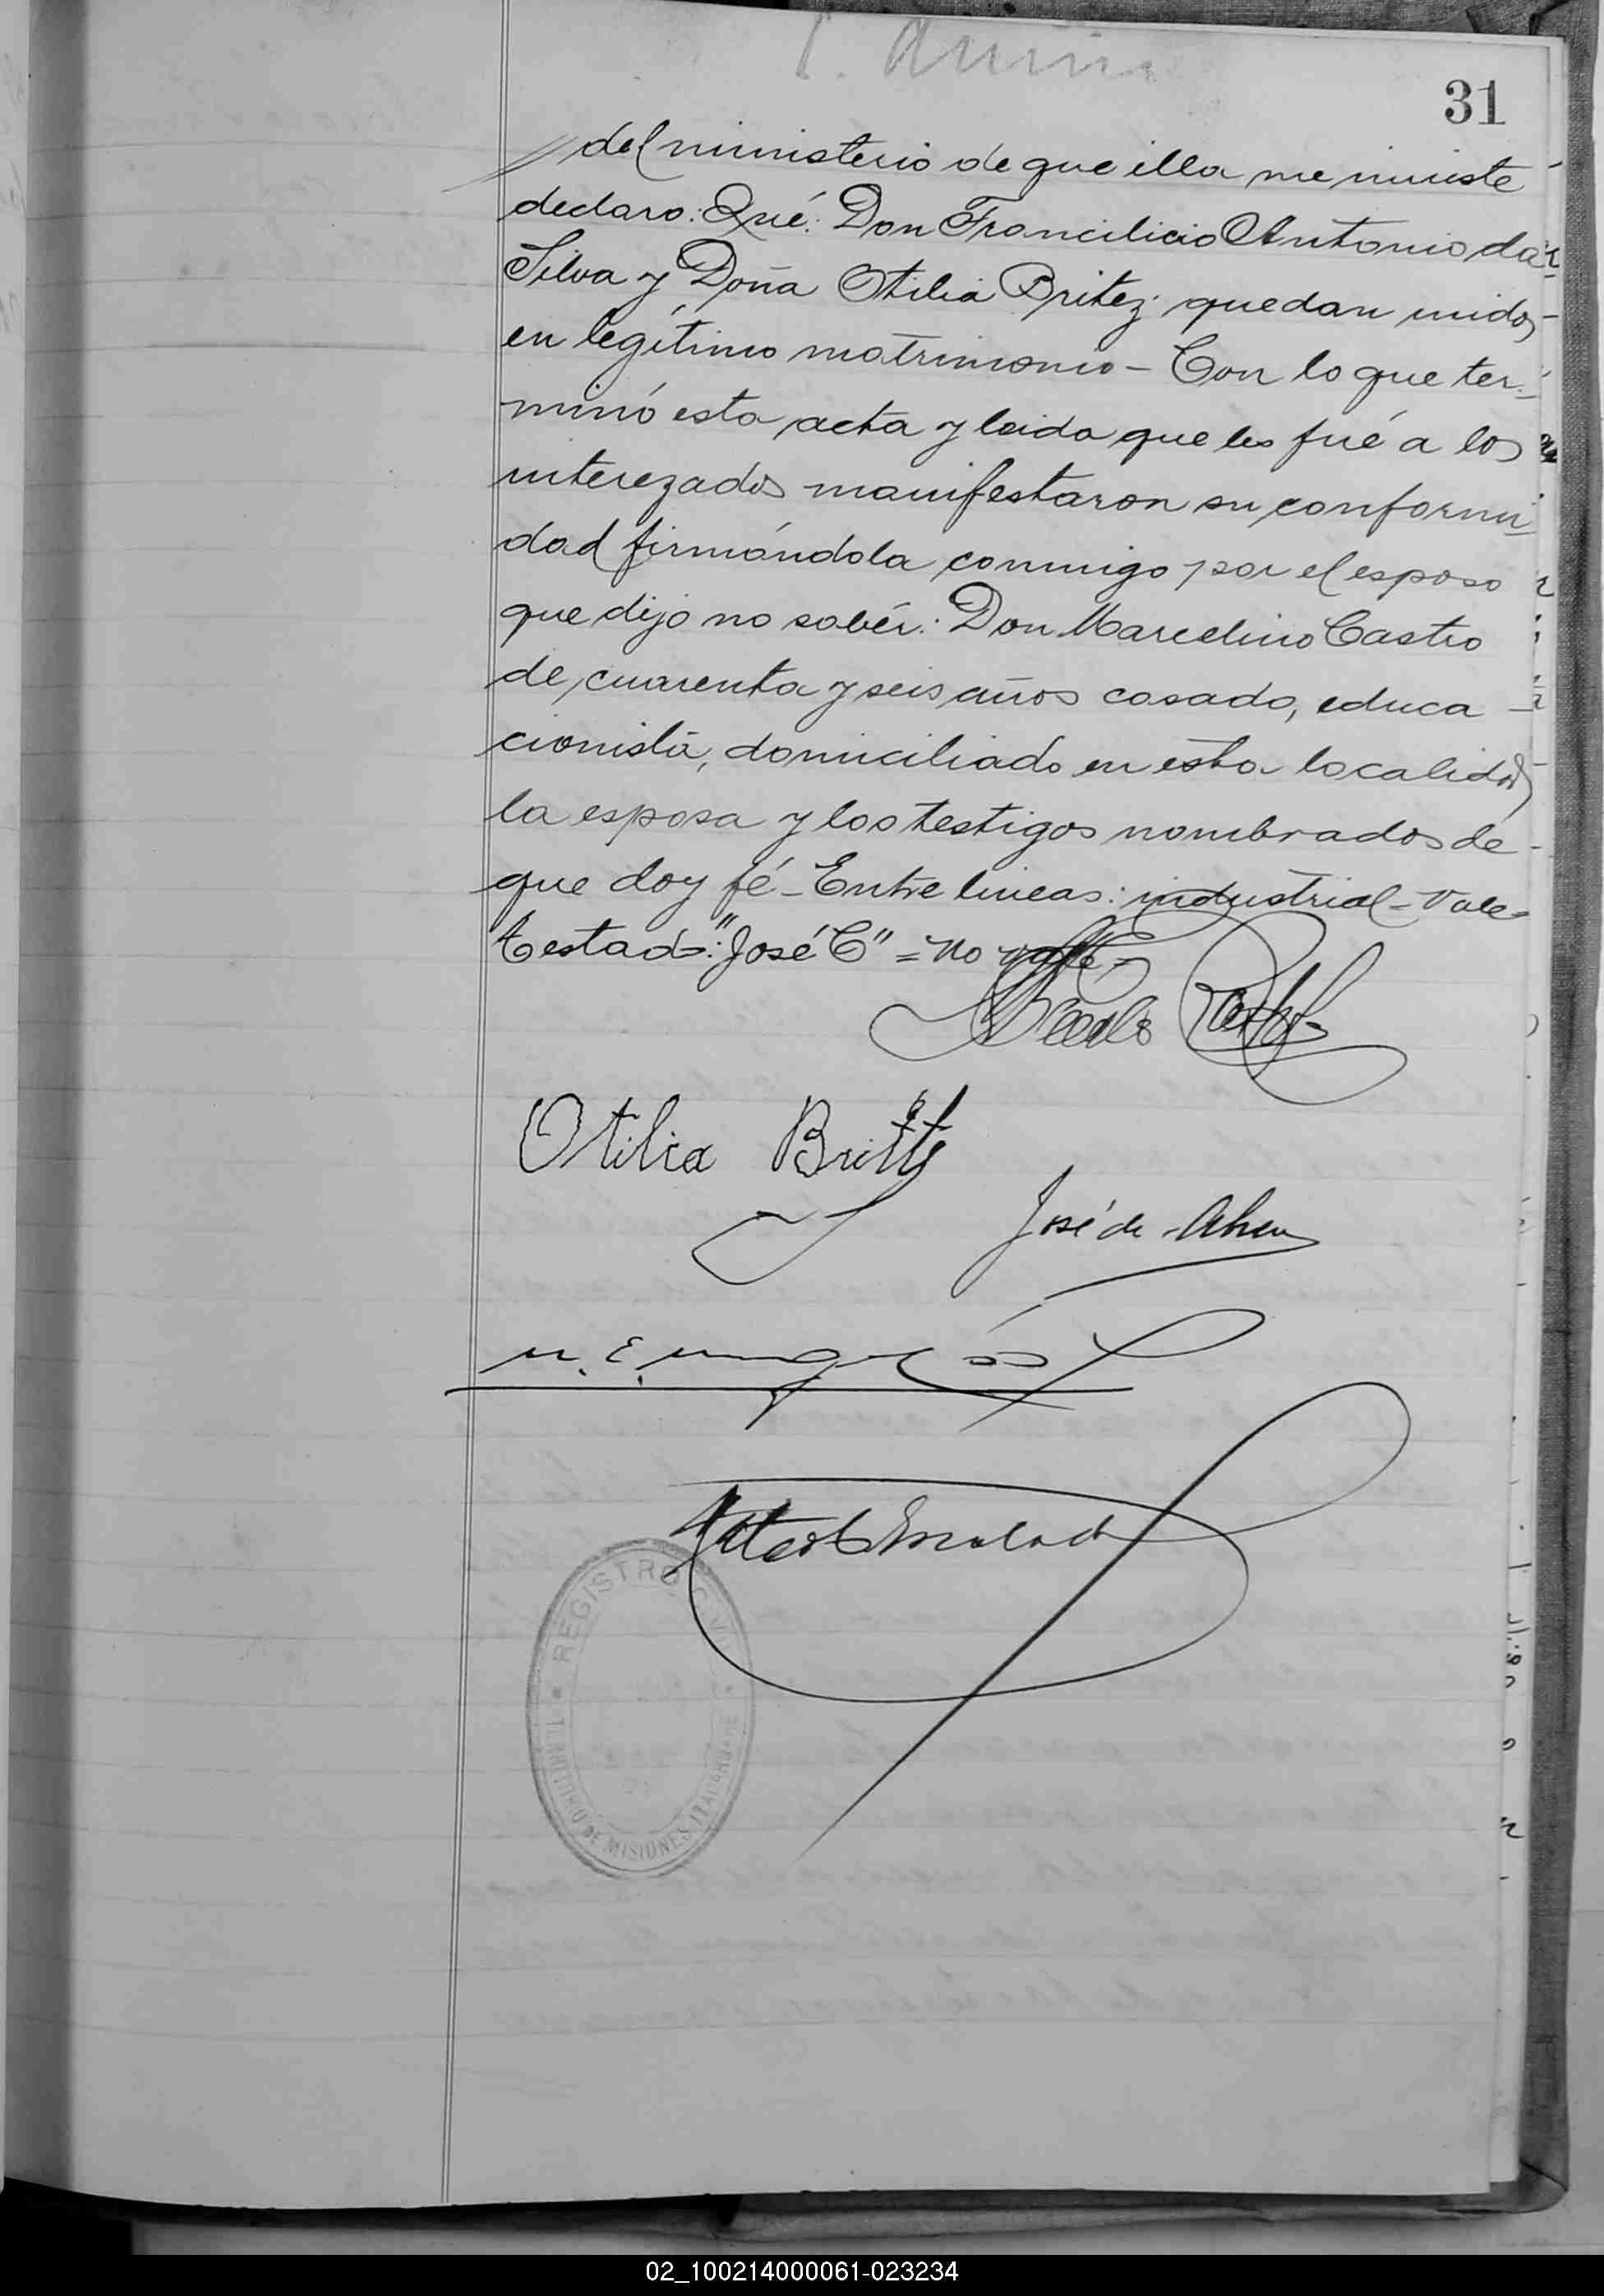 31
del ministerio de que ella me inviste
declaro: Qué: Don Francilicio Antonio da
Silva y Doña Otilia Britez quedan unidos
en legítimo matrimonio - Con lo que ter-
minó esta acta y leida que les fué a los
interezados manifestaron su conformi
dad firmándola conmigo por el esposo
que dijo no sabér: Don Marcelino Castro
de cuarenta y seis años casado, educa
cionista, domiciliado en esta localidad
la esposa y los testigos nombrados de
que doy fé - Entre lineas: industrial - Vale -
Testado: "José C" = no vale -
Otilia Britez
José de
REGISTRO CIVIL
TERRITORIO DE MISIONES
02_100214000061-023234